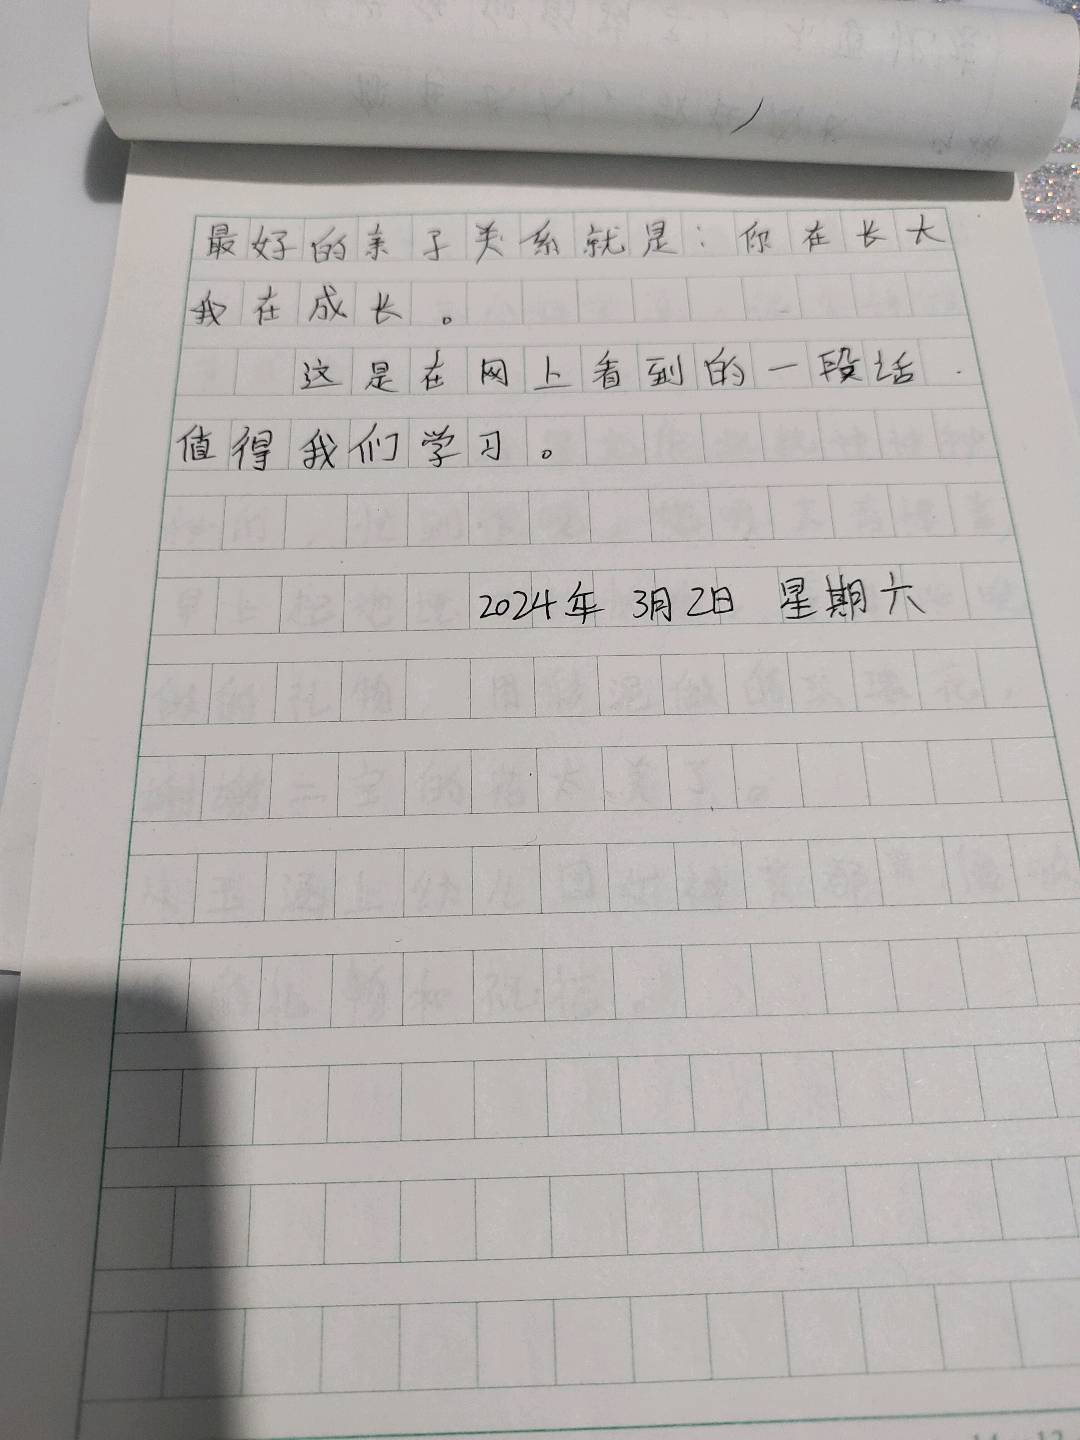 最好的亲子关系就是：你在长大
我在成长。
这是在网上看到的一段话.
值得我们学习。
2024年 3月2日 星期六